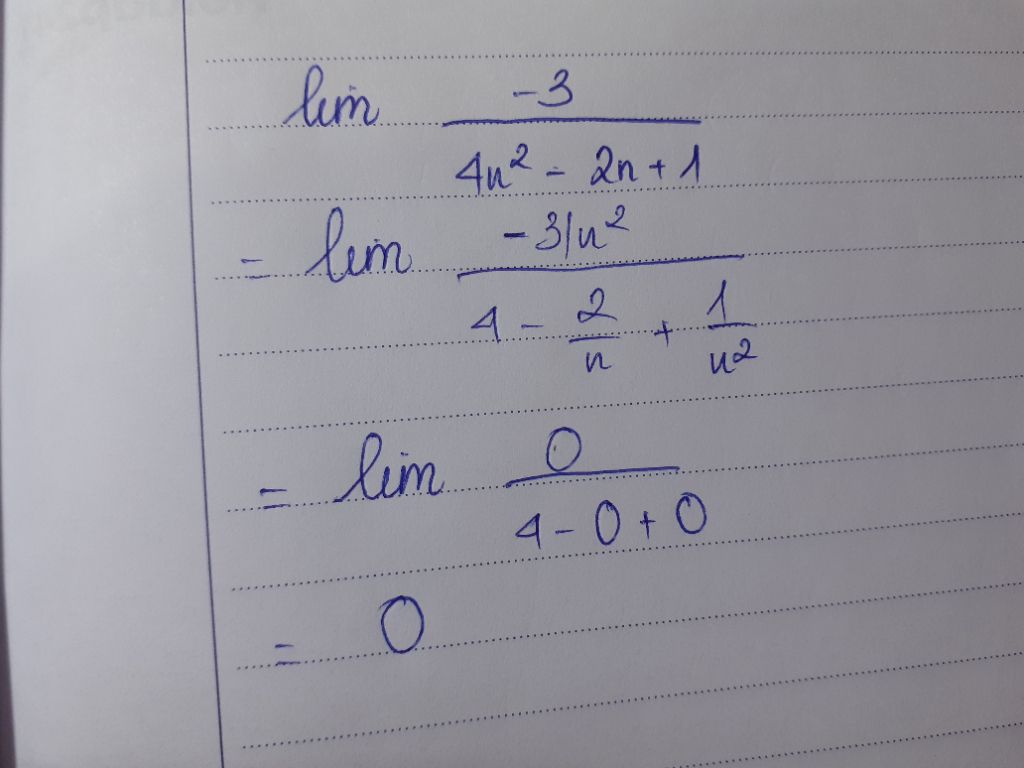 lim -3 / (4n² - 2n + 1)
= lim (-3/n²) / (4 - 2/n + 1/n²)
= lim 0 / (4 - 0 + 0)
= 0